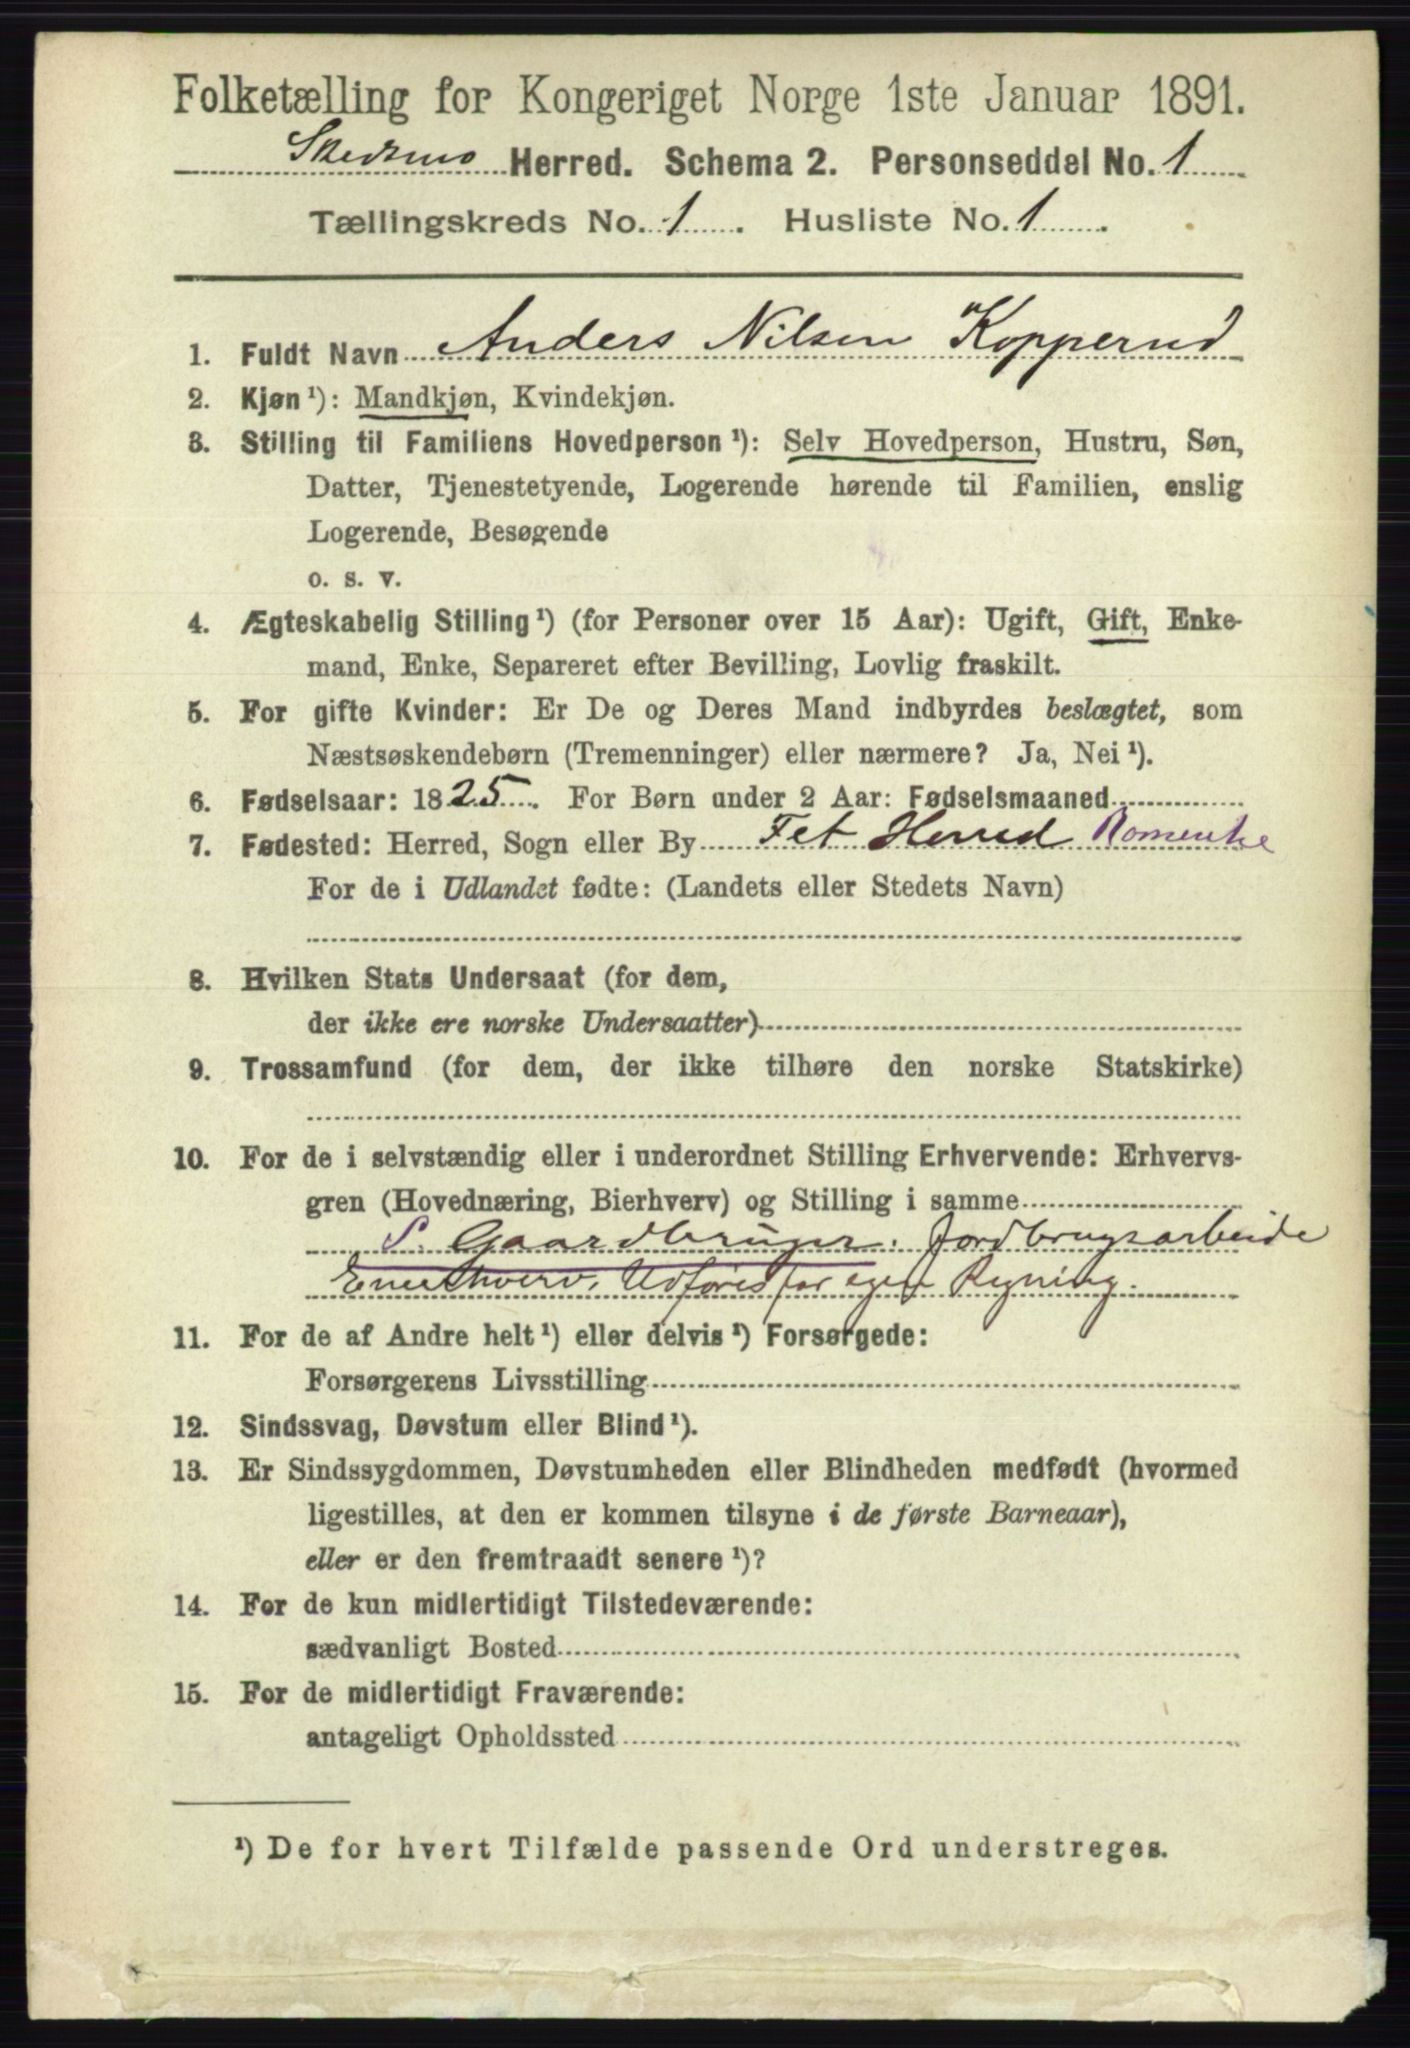 Folketælling for Kongeriget Norge 1ste Januar 1891.
Skedsmo Herred. Schema 2. Personseddel No. 1
Tællingskreds No. 1. Husliste No. 1.
1. Fuldt Navn Anders Nilsen Kopperud
2. Kjøn ¹): Mandkjøn, Kvindekjøn.
3. Stilling til Familiens Hovedperson ¹): Selv Hovedperson, Hustru, Søn,
Datter, Tjenestetyende, Logerende hørende til Familien, enslig
Logerende, Besøgende
o. s. v.
4. Ægteskabelig Stilling ¹) (for Personer over 15 Aar): Ugift, Gift, Enke-
mand, Enke, Separeret efter Bevilling, Lovlig fraskilt.
5. For gifte Kvinder: Er De og Deres Mand indbyrdes beslægtet, som
Næstsøskendebørn (Tremenninger) eller nærmere? Ja, Nei ¹).
6. Fødselsaar: 1825. For Børn under 2 Aar: Fødselsmaaned
7. Fødested: Herred, Sogn eller By Fet Herred Romerike
For de i Udlandet fødte: (Landets eller Stedets Navn)
8. Hvilken Stats Undersaat (for dem,
der ikke ere norske Undersaatter)
9. Trossamfund (for dem, der ikke tilhøre den norske Statskirke)
10. For de i selvstændig eller i underordnet Stilling Erhvervende: Erhvervs-
gren (Hovednæring, Bierhverv) og Stilling i samme
S. Gaardbruger. Jordbrugsarbeide
Eneerhverv. Udføres for egen Regning.
11. For de af Andre helt ¹) eller delvis ¹) Forsørgede:
Forsørgerens Livsstilling
12. Sindssvag, Døvstum eller Blind ¹).
13. Er Sindssygdommen, Døvstumheden eller Blindheden medfødt (hvormed
ligestilles, at den er kommen tilsyne i de første Barneaar),
eller er den fremtraadt senere ¹)?
14. For de kun midlertidigt Tilstedeværende:
sædvanligt Bosted
15. For de midlertidigt Fraværende:
antageligt Opholdssted
¹) De for hvert Tilfælde passende Ord understreges.